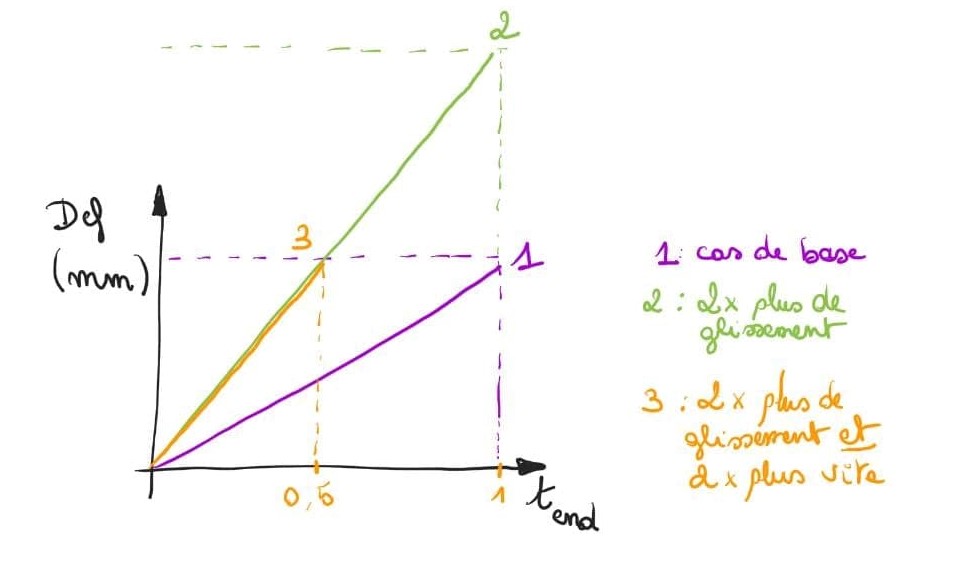 2
Def
(mm)
3
1
0,5
1
t end
1: cas de base
2 : 2x plus de
glissement
3 : 2x plus de
glissement et
2x plus vite